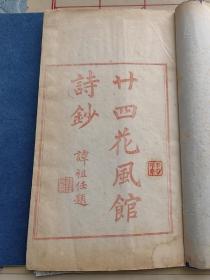 廿四花風館
詩鈔
譚祖任題